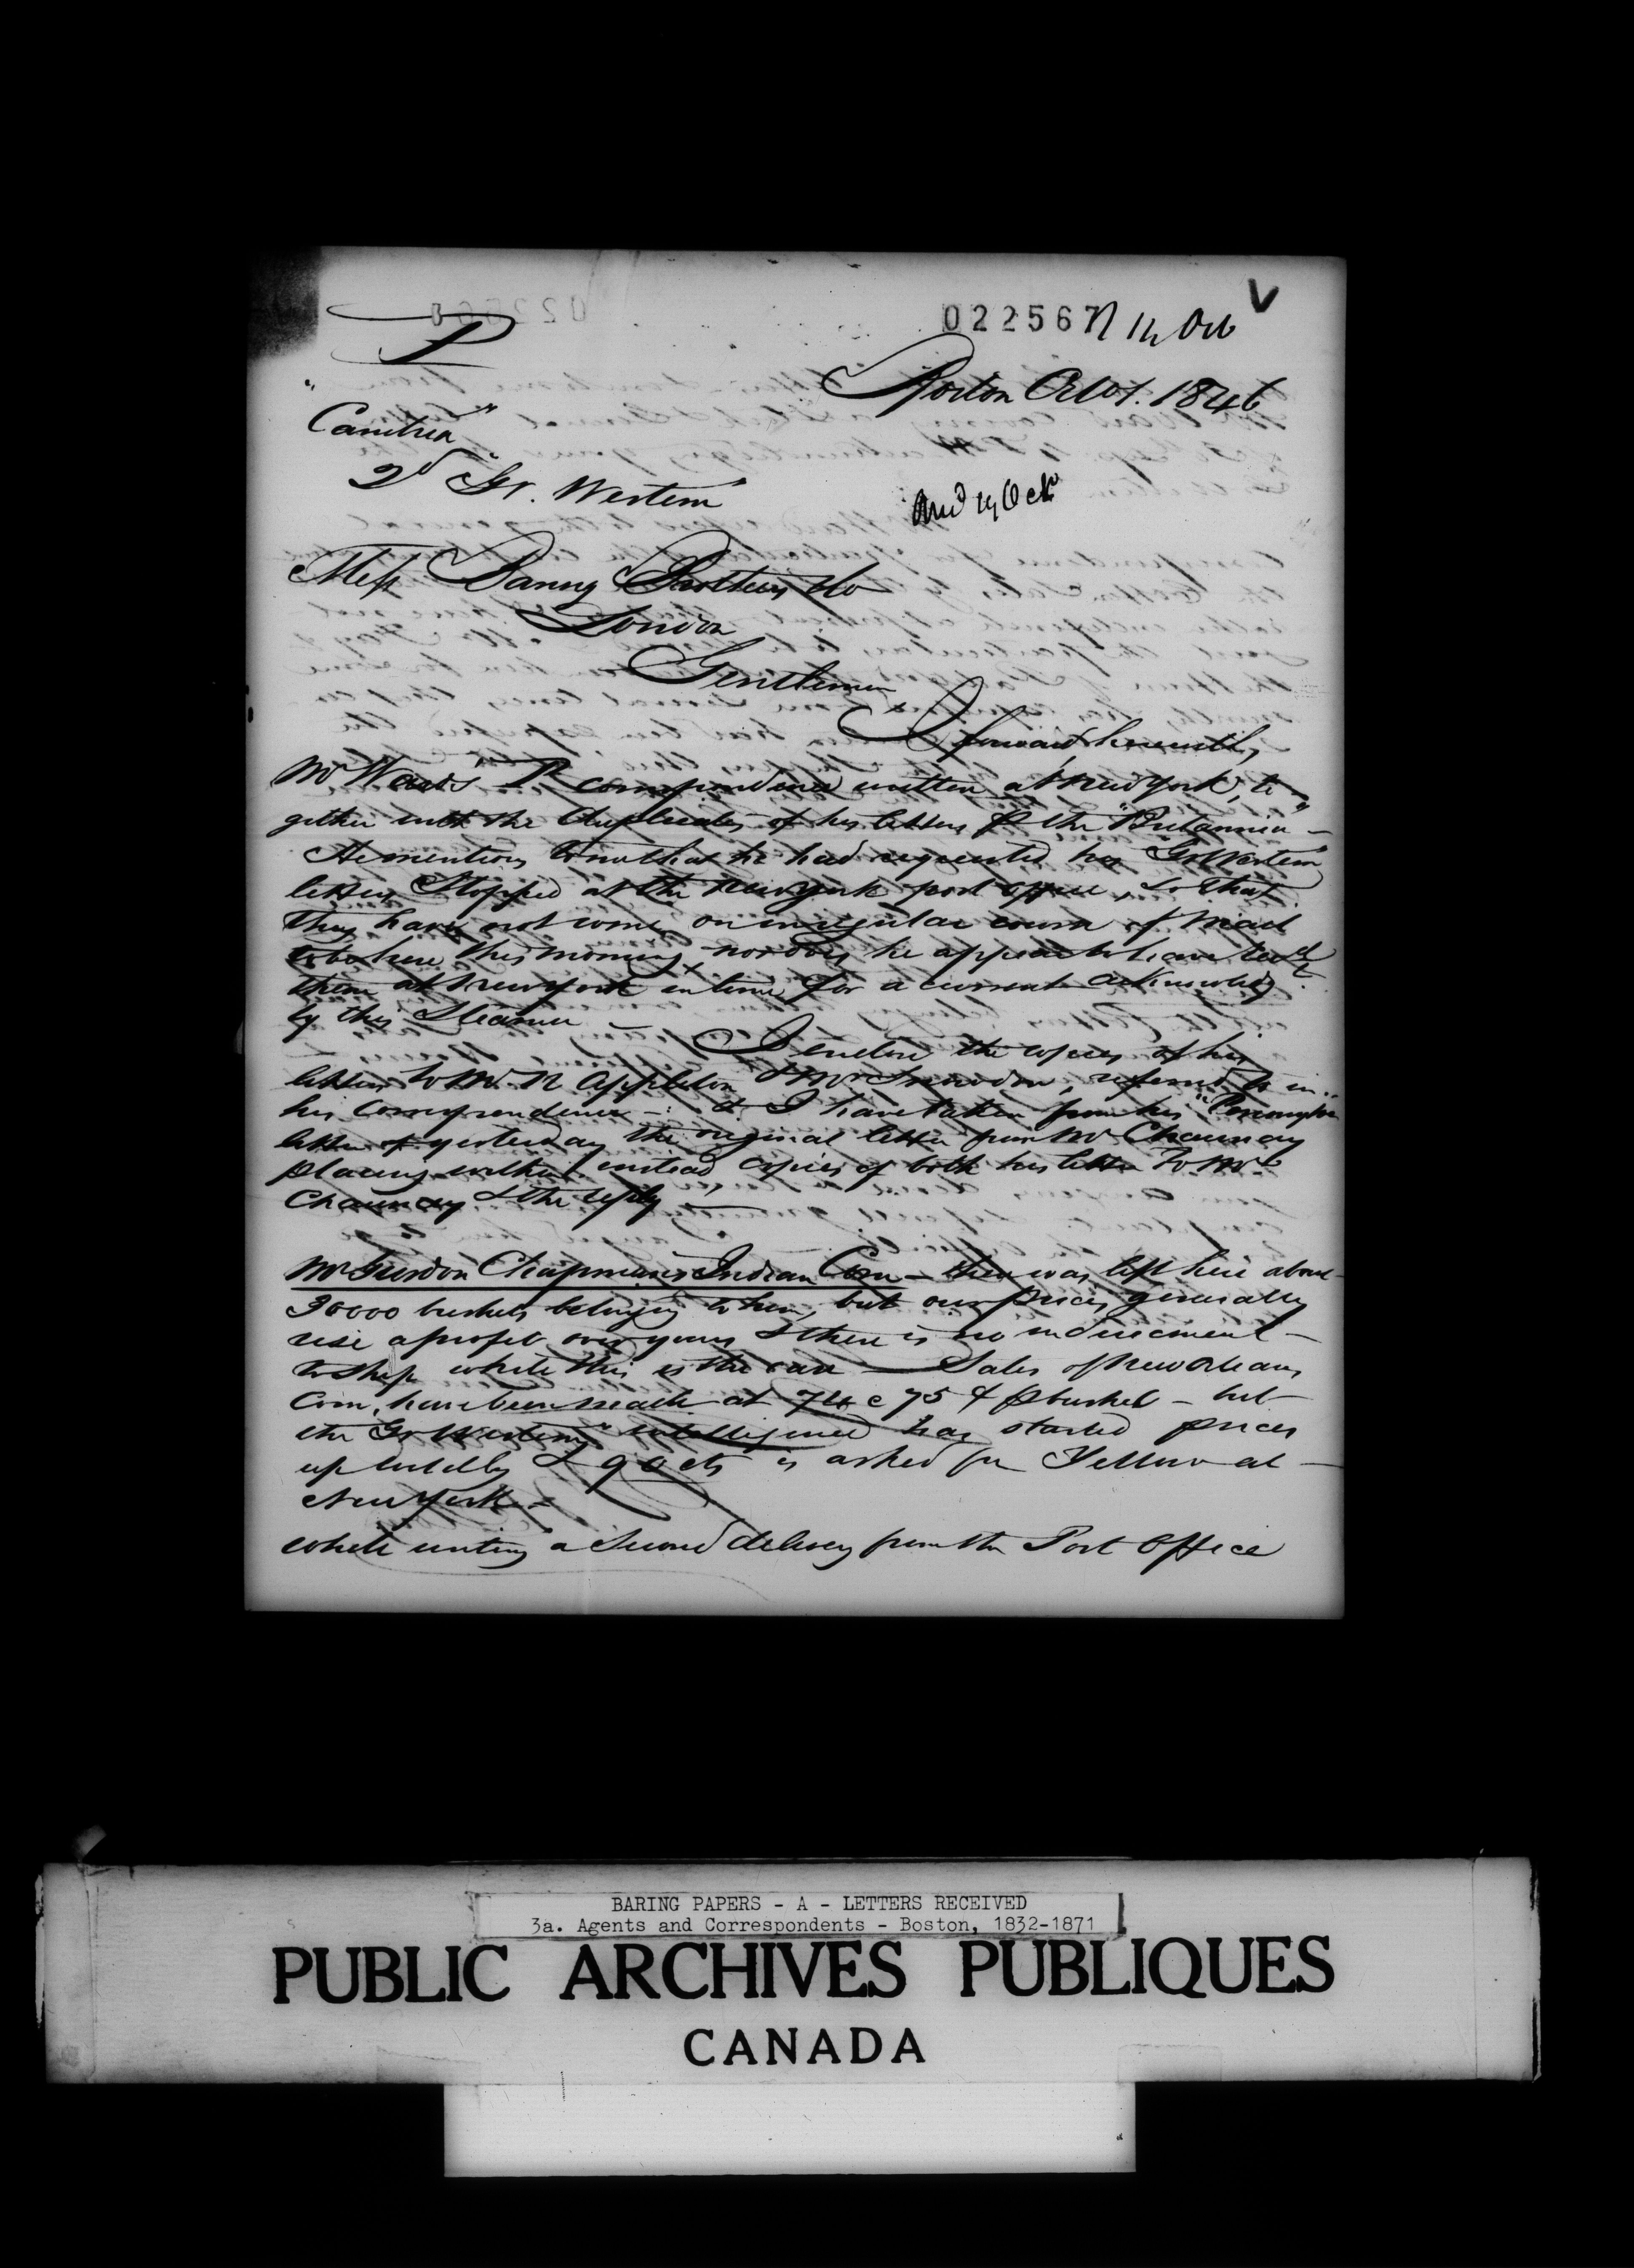 022567 14 Oct
P
Boston Oct 1. 1846
"Cambria"
2d "Gt. Western"
Ansd 19 Oct
Mess Baring Brothers & Co
London
Gentlemen
I forward herewith,
Mr Wards P correspondence written at New York, to-
gether with the duplicates of his letters P the "Britannia" -
He mentions to me that he had requested his "Gt Western"
letters stopped at the New York post office, so that
they have not come on in regular course of mail
to be here this morning, nor does he appear to have recd
them at New York in time for a current acknowledgt
by this Steamer -
I enclose the copies of his
letters to Mr N Appleton & Mr Snowdon, referred to in
his correspondence -: & I have taken from his "
letter of yesterday the original letter from Mr Chauncey
placing within instead copies of both his letter to Mr
Chauncey & the reply -
Mr Gurdon Chapmans Indian Corn - there was left here about
30000 bushels belonging to him, but our prices generally
rise a profit over yours & there is no inducement -
to ship while this is the case - Sales of New Orleans
Corn, have been made at 74 @ 75 ¢ P bushel - but
the "Gt Western" intelligence has started prices
up wildly & 90 cts is asked for Yellow at -
New York -
while writing a second delivery from the Post Office
BARING PAPERS - A - LETTERS RECEIVED
3a. Agents and Correspondents - Boston, 1832-1871
PUBLIC ARCHIVES PUBLIQUES
CANADA